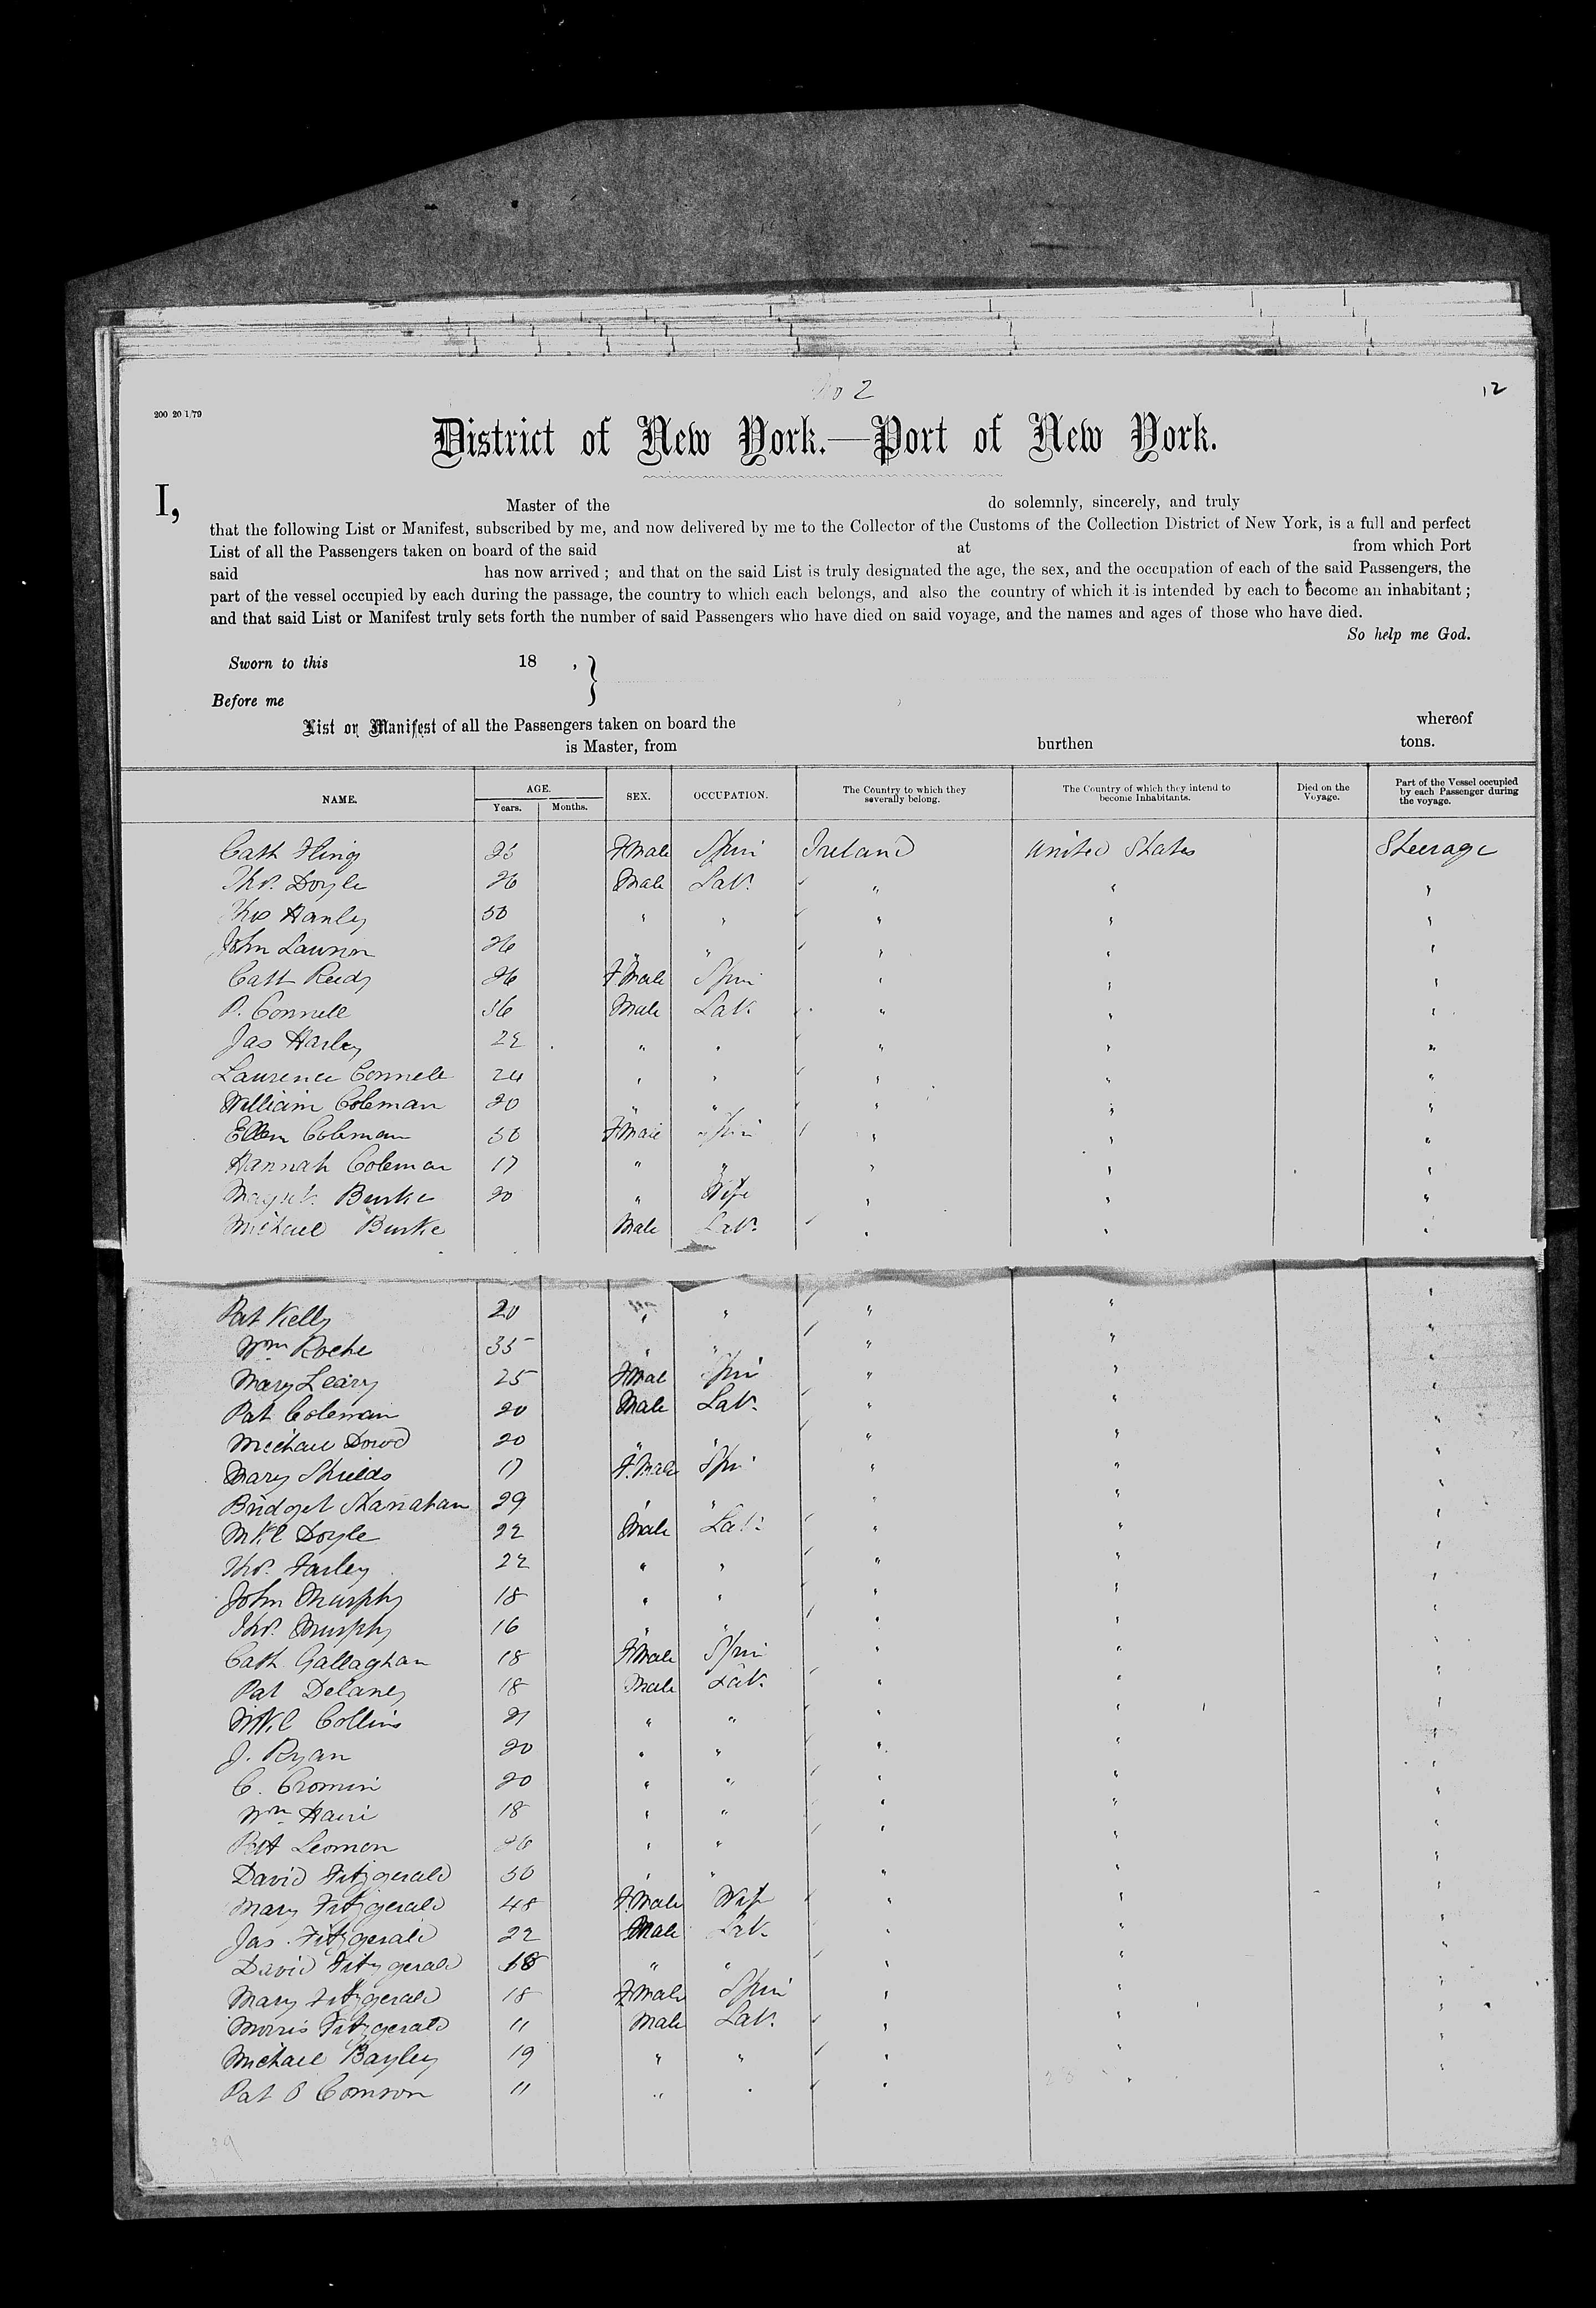 No 2
12
200 20 1/79
District of New York.—Port of New York.
I, Master of the do solemnly, sincerely, and truly
that the following List or Manifest, subscribed by me, and now delivered by me to the Collector of the Customs of the Collection District of New York, is a full and perfect
List of all the Passengers taken on board of the said at from which Port
said has now arrived ; and that on the said List is truly designated the age, the sex, and the occupation of each of the said Passengers, the
part of the vessel occupied by each during the passage, the country to which each belongs, and also the country of which it is intended by each to become an inhabitant ;
and that said List or Manifest truly sets forth the number of said Passengers who have died on said voyage, and the names and ages of those who have died.
So help me God.
Sworn to this 18 , }
Before me
List or Manifest of all the Passengers taken on board the whereof
is Master, from burthen tons.
NAME. AGE. Years. Months. SEX. OCCUPATION. The Country to which they severally belong. The Country of which they intend to become Inhabitants. Died on the Voyage. Part of the Vessel occupied by each Passenger during the voyage.
Cath Fmale Spin Ireland United States Steerage
Thos. Doyle 26 Male Lab. " " "
Thos Hanley 50 " " " " "
John Lawson 26 " " " " "
Cath Reidy 26 F.Male Spin " " "
P. Connell 36 Male Lab. " " "
Jas Harley 22 " " " " "
Laurence Connell 24 " " " " "
William Coleman 20 " " " " "
Ellen Coleman 50 F.Male Spin " " "
Hannah Coleman 17 " " " " "
Magt. Burke 20 " Wife " " "
Michael Burke Male Lab. " " "
Pat Kelly 20 " " " " "
Wm Roche 35 " " " " "
Mary Leary 25 F.Mal Spin " " "
Pat Coleman 20 Male Lab. " " "
Michael Dowd 20 " " " " "
Mary Shields 17 F.Male Spin " " "
Bridget Shanahan 29 " " " " "
Mhl Doyle 22 Male Lab. " " "
Thos. Farley 22 " " " " "
John Murphy 18 " " " " "
Thos. Murphy 16 " " " " "
Cath. Gallaghan 18 F.Male Spin " " "
Pat Delaney 18 Male Lab. " " "
Mhl Collins 21 " " " " "
J. Ryan 20 " " " " "
C. Cromin 20 " " " " "
Wm Hain 18 " " " " "
Leomon " " " " "
David Fitzgerald 50 " " " " "
Mary Fitzgerald 48 F.Male Wife " " "
Jas. Fitzgerald 22 Male Lab. " " "
David Fitzgerald 18 " " " " "
Mary Fitzgerald 18 F.Male Spin " " "
Morris Fitzgerald 11 Male Lab. " " "
Michael Bayley 19 " " " " "
Pat O Comson 11 " " " "
39